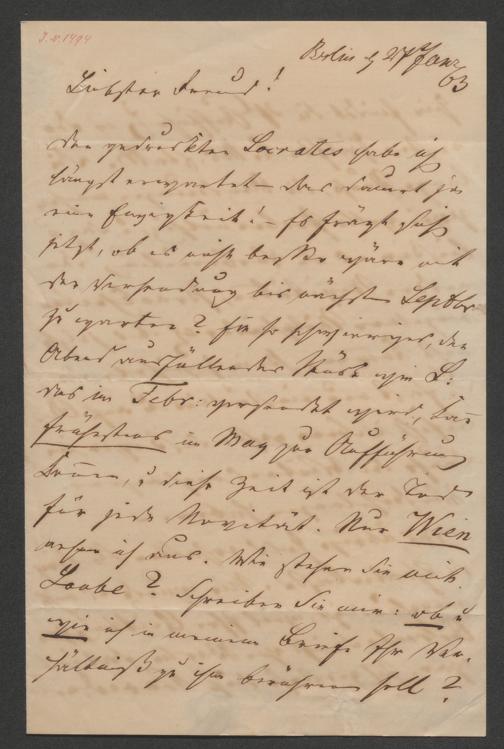 J. N. 1494
Berlin d 27 Janr
63
Liebster Freund!
Den gedruckten Socrates habe ich
längst erwartet – das dauert ja
eine Ewigkeit! – Es frägt sich
jetzt, ob es nicht besser wäre mit
der Versendung bis nächsten Septbr
zu warten? Ein so schwieriges, den
Abend ausfüllendes Stück wie S:
das im Febr: versendet wird, kann
frühestens im May zur Aufführung
kommen, u diese Zeit ist der Tod
für jede Novität. Nur Wien
nehme ich aus. Wie stehen Sie mit
Laube? Schreiben Sie mir: ob u
wie ich in meinem Briefe Ihr Ver-
hältniß zu ihm berühren soll?